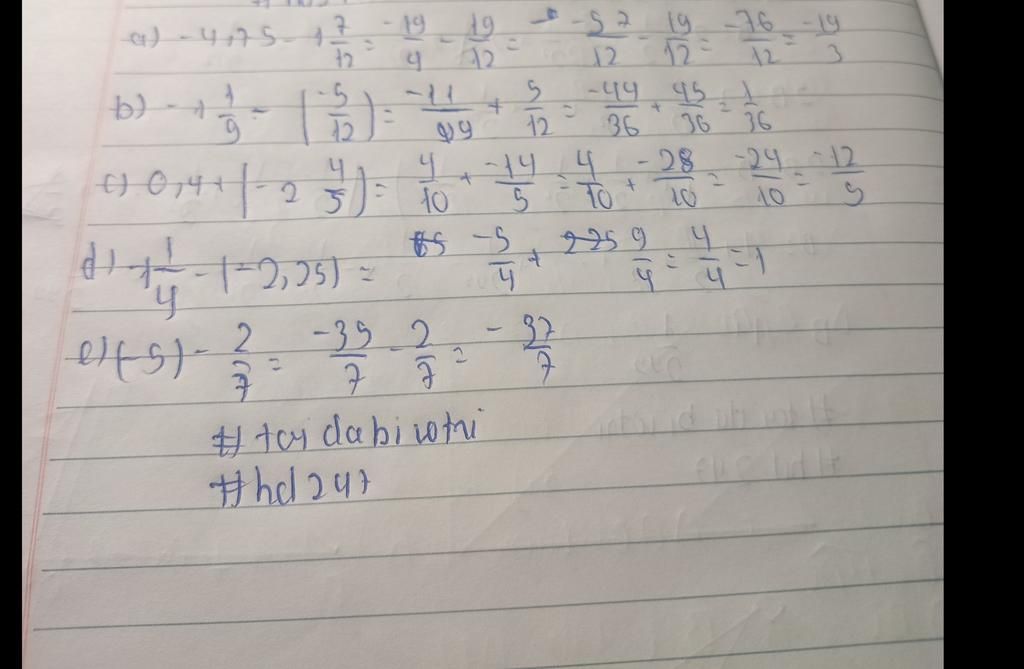 a) -4,75 - 1 7/12 = -19/4 - 19/12 = -57/12 - 19/12 = -76/12 = -19/3
b) -1 1/9 - (-5/12) = -10/9 + 5/12 = -44/36 + 45/36 = 1/36
c) 0,4 + (-2 4/5) = 4/10 + -14/5 = 4/10 + -28/10 = -24/10 = -12/5
d) -1 1/4 - (-2,25) = -5/4 + 9/4 = 4/4 = 1
e) (-5) - 2/7 = -35/7 - 2/7 = -37/7
#hd247